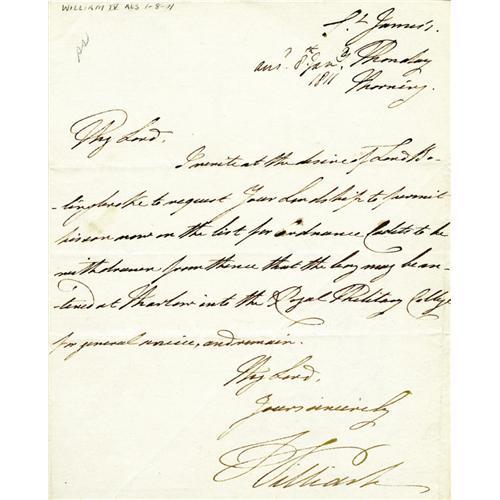 WILLIAM IV ALS 1-8-11
St. James's.
ansd. 8th Jany. Thursday
1811 Morning.
My Lord,
I write at the desire of Lord Bo-
-lingbroke to request Your Lordship to permit
his son now on the list for ordnance Cadets to be
withdrawn from thence that the boy may be en-
-tered at Marlow into the Royal Military College
for general service, and remain.
My Lord,
Yours sincerely
William